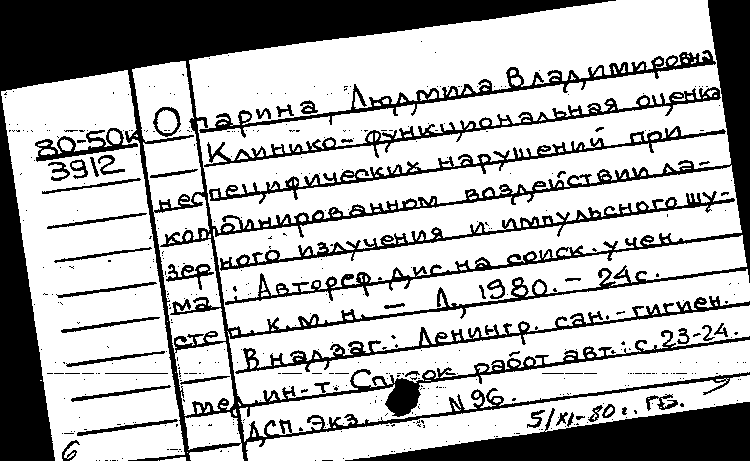 80-50к
3912
Опарина, Людмила Владимировна
Клинико-функциональная оценка
неспецифических нарушений при
комбинированном воздействии ла-
зерного излучения и импульсного шу-
ма : Автореф. дис. на соиск. учен.
степ. к. м. н. — Л., 1980. - 24с.
В надзаг.: Ленингр. сан.-гигиен.
мед. ин-т. Список работ авт.: с. 23-24.
ДСП. Экз. N 96.
5/XI-80г. ГБ.
6